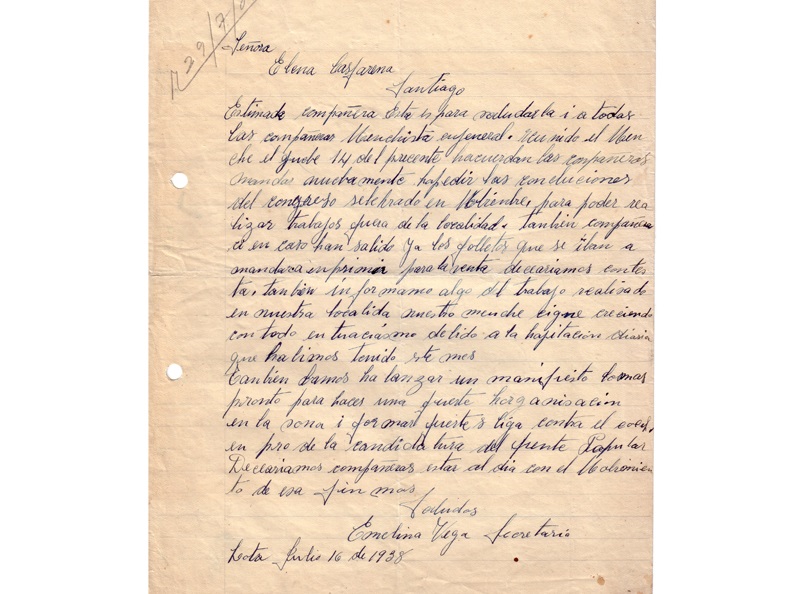 Señora
Elena Caffarena
Santiago
Estimada compañera Esta es para saludarla i a todas
las compañeras Menchista en jeneral. Reunido el Men
che el juebe 14 del precente hacuerdan las compañeras
mandar nuebamente ha pedir las concluciones
del congreso selebrado en Nobienbre, para poder rea
lizar trabajos fuera de la localidad. tanbien compañera
ci en caso han salido ya los folletos que se iban a
mandar a inprimir para la venta deceariamos contes
ta. tanbien informamo algo del trabajo realisado
en nuestra localida nuestro menche cigue creciendo
con todo entuciasmo debido a la hajitacion diaria
que habimos tenido este mes
Tanbien bamos ha lanzar un manifiesto lo mas
pronto para hacer una fuerte horganisacion
en la sona i formar fuertes liga contra el
en pro de la candidatura del frente Popular
Deceariamos compañeras estar al dia con el Mobimien
to de esa sin mas
Saludos
Emelina Vega Secretario
Lota Julio 16 de 1938